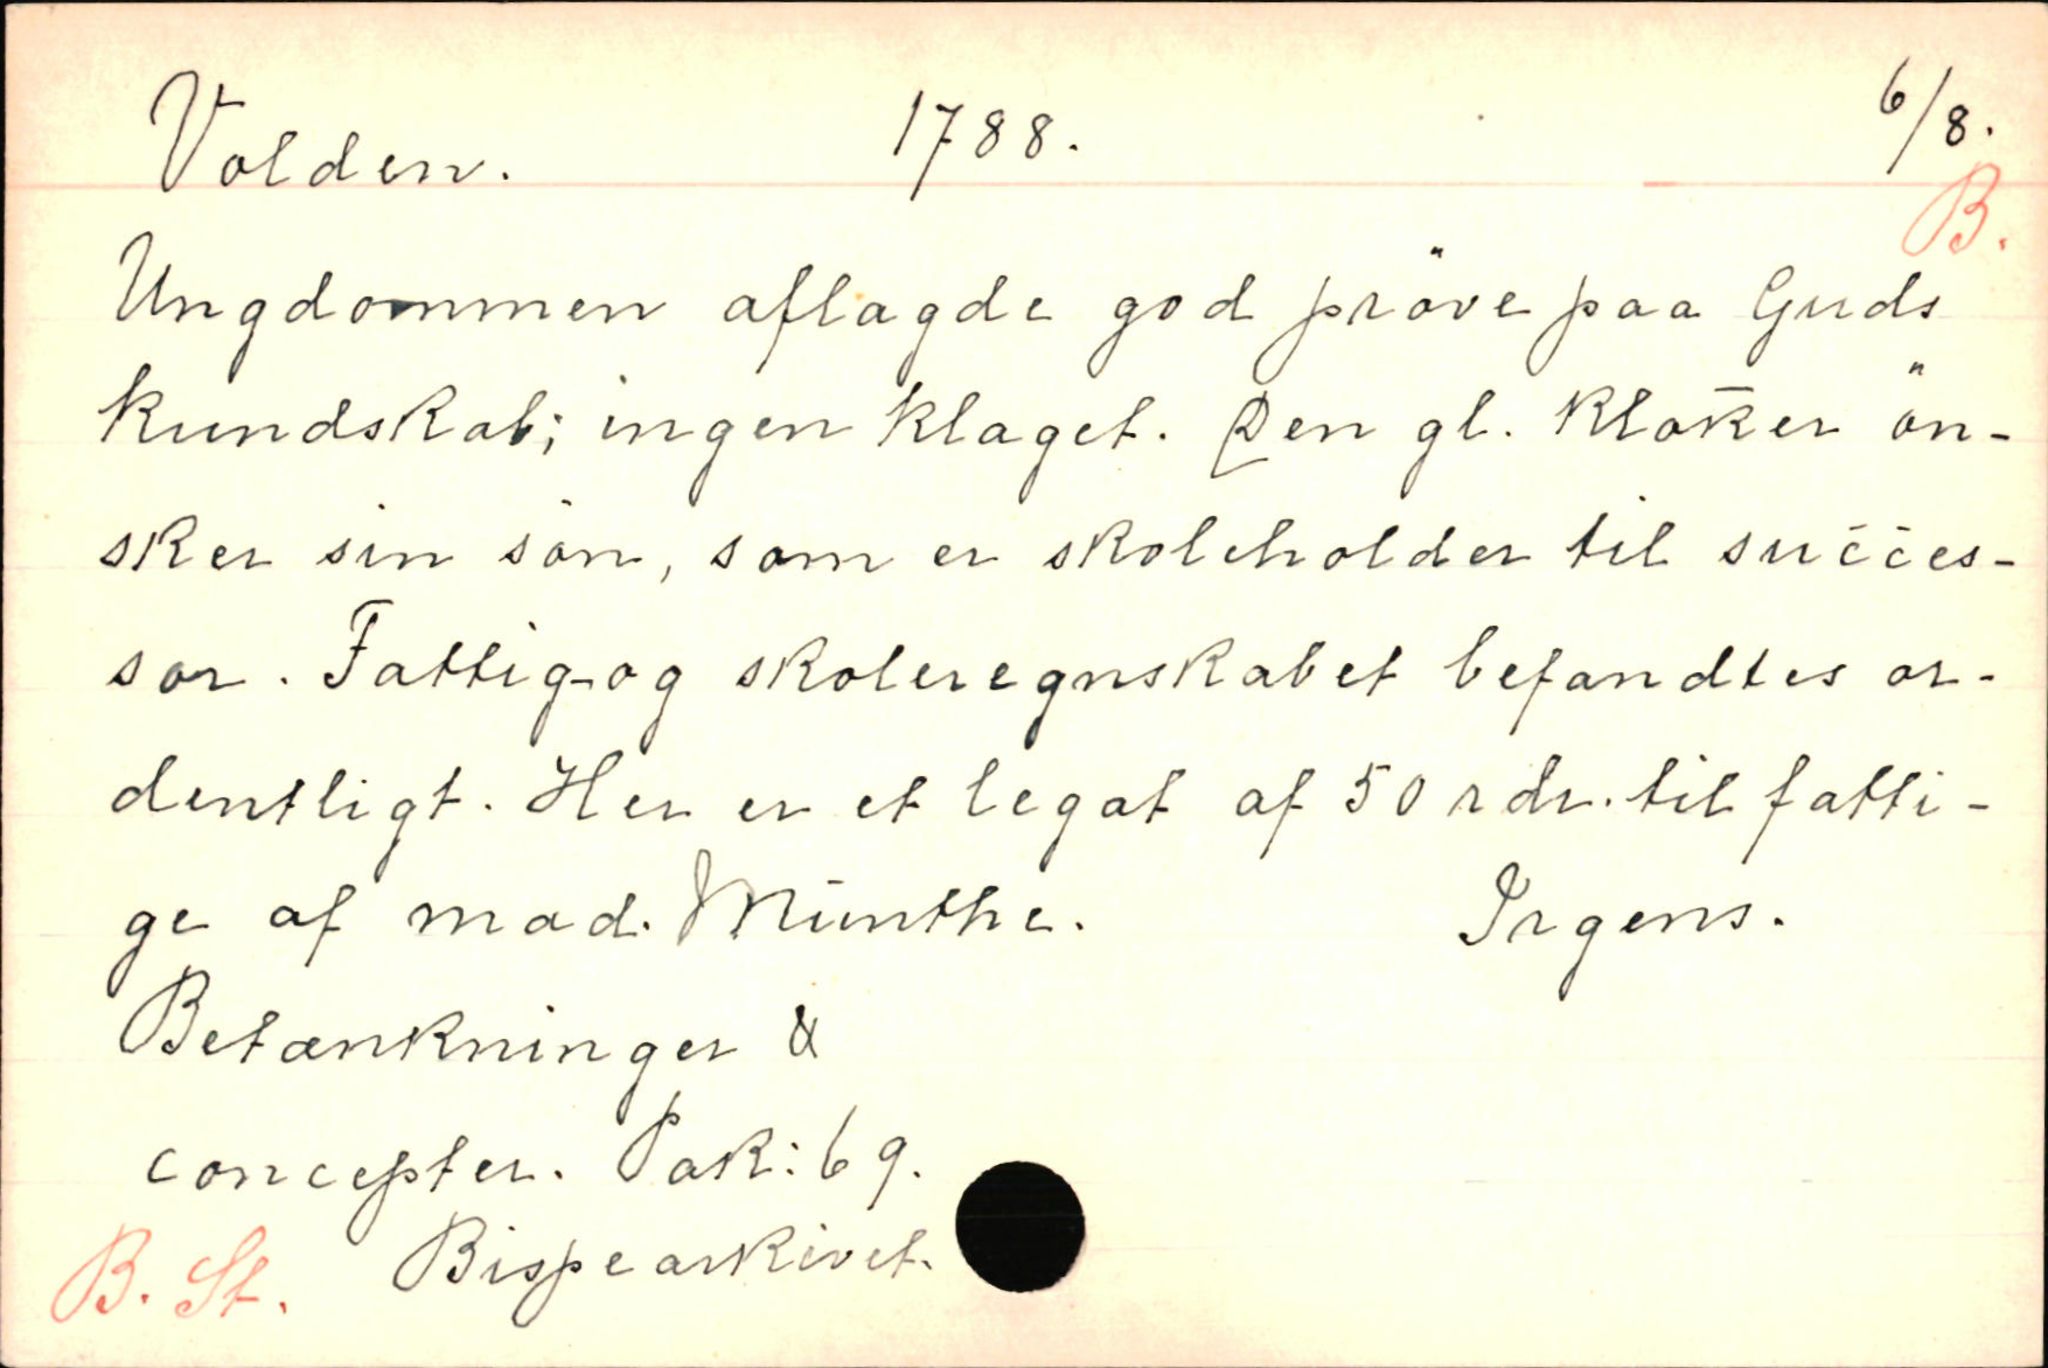 Volden. 1788. 6/8.
B.
Ungdommen aflagde god pröve paa Guds
kundskab; ingen klaget. Den gl. klokker ön-
sker sin sön, som er skoleholder til succes-
sor. Fattig- og skoleregnskabet befandtes or-
dentligt. Her er et legat af 50 rdr. til fatti-
ge af mad. Münthe. Irgens.
Betænkninger &
concepter. Pak: 69.
B. St. Bispearkivet.